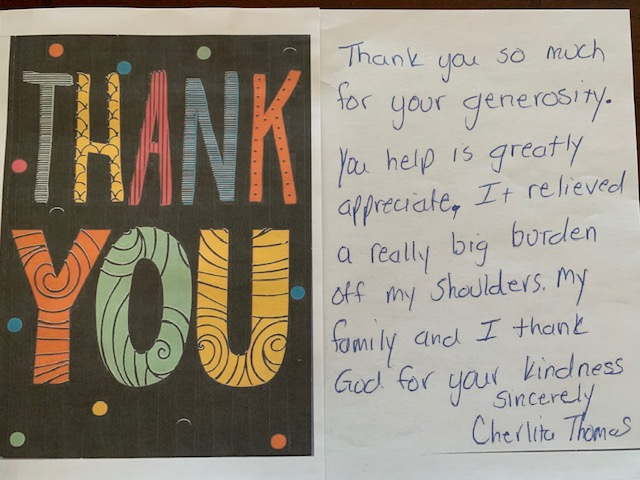 THANK
YOU
Thank you so much
for your generosity.
You help is greatly
appreciate, It relieved
a really big burden
off my shoulders. My
family and I thank
God for your kindness
Sincerely
Cherlita Thomas